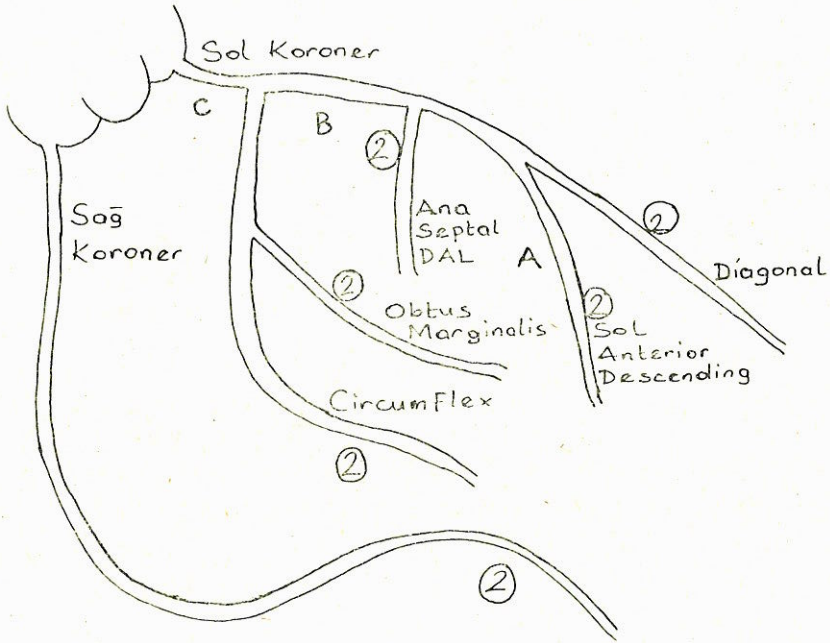 Sol Koroner
C
B
2
Sağ
Koroner
Ana
Septal
DAL
A
2
Diagonal
2
Obtus
Marginalis
2
Sol
Anterior
Descending
CircumFlex
2
2